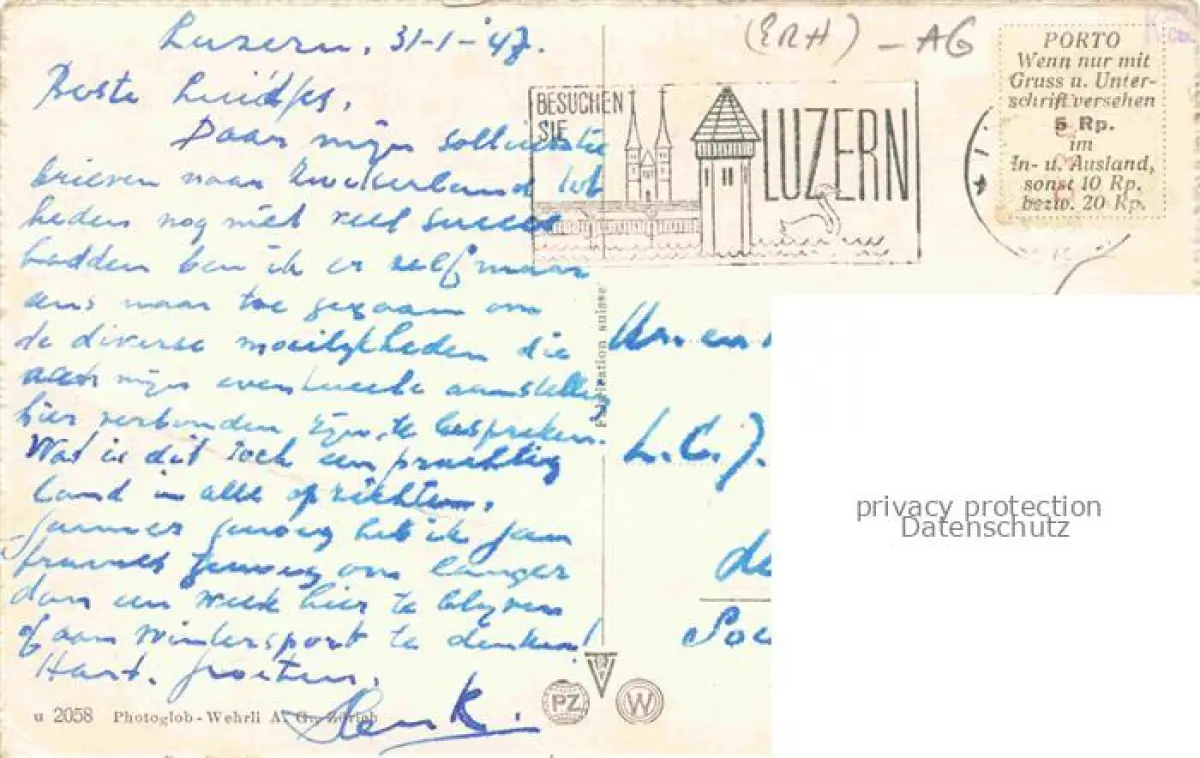 Luzern, 31-1-'47.
Beste Luidjes,
Daar mijn sollicitatie
brieven naar Zwitserland tot
heden nog niet veel succes
hadden ben ik er zelf maar
eens naar toe gegaan om
de diverse moeilijkheden die
aan mijn eventueele aanstelling
hier verbonden zijn, te bespreken.
Wat is dit toch een prachtig
land in alle opzichten.
Jammer genoeg heb ik geen
genoeg om langer
dan een week hier te blijven
of aan wintersport te denken!
Hart. groeten,
Henk.
u 2058 Photoglob-Wehrli A. G., Zürich
(ERH) - AG
BESUCHEN
SIE
LUZERN
PORTO
Wenn nur mit
Gruss u. Unter-
schrift versehen
5 Rp.
im
In- u. Ausland,
sonst 10 Rp.
bezw. 20 Rp.
suisse
en
L.C.J.
PZ
W
privacy protection
Datenschutz